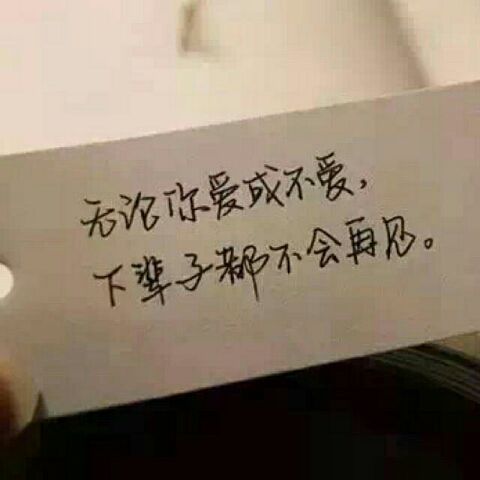 无论你爱或不爱，
下辈子都不会再见。